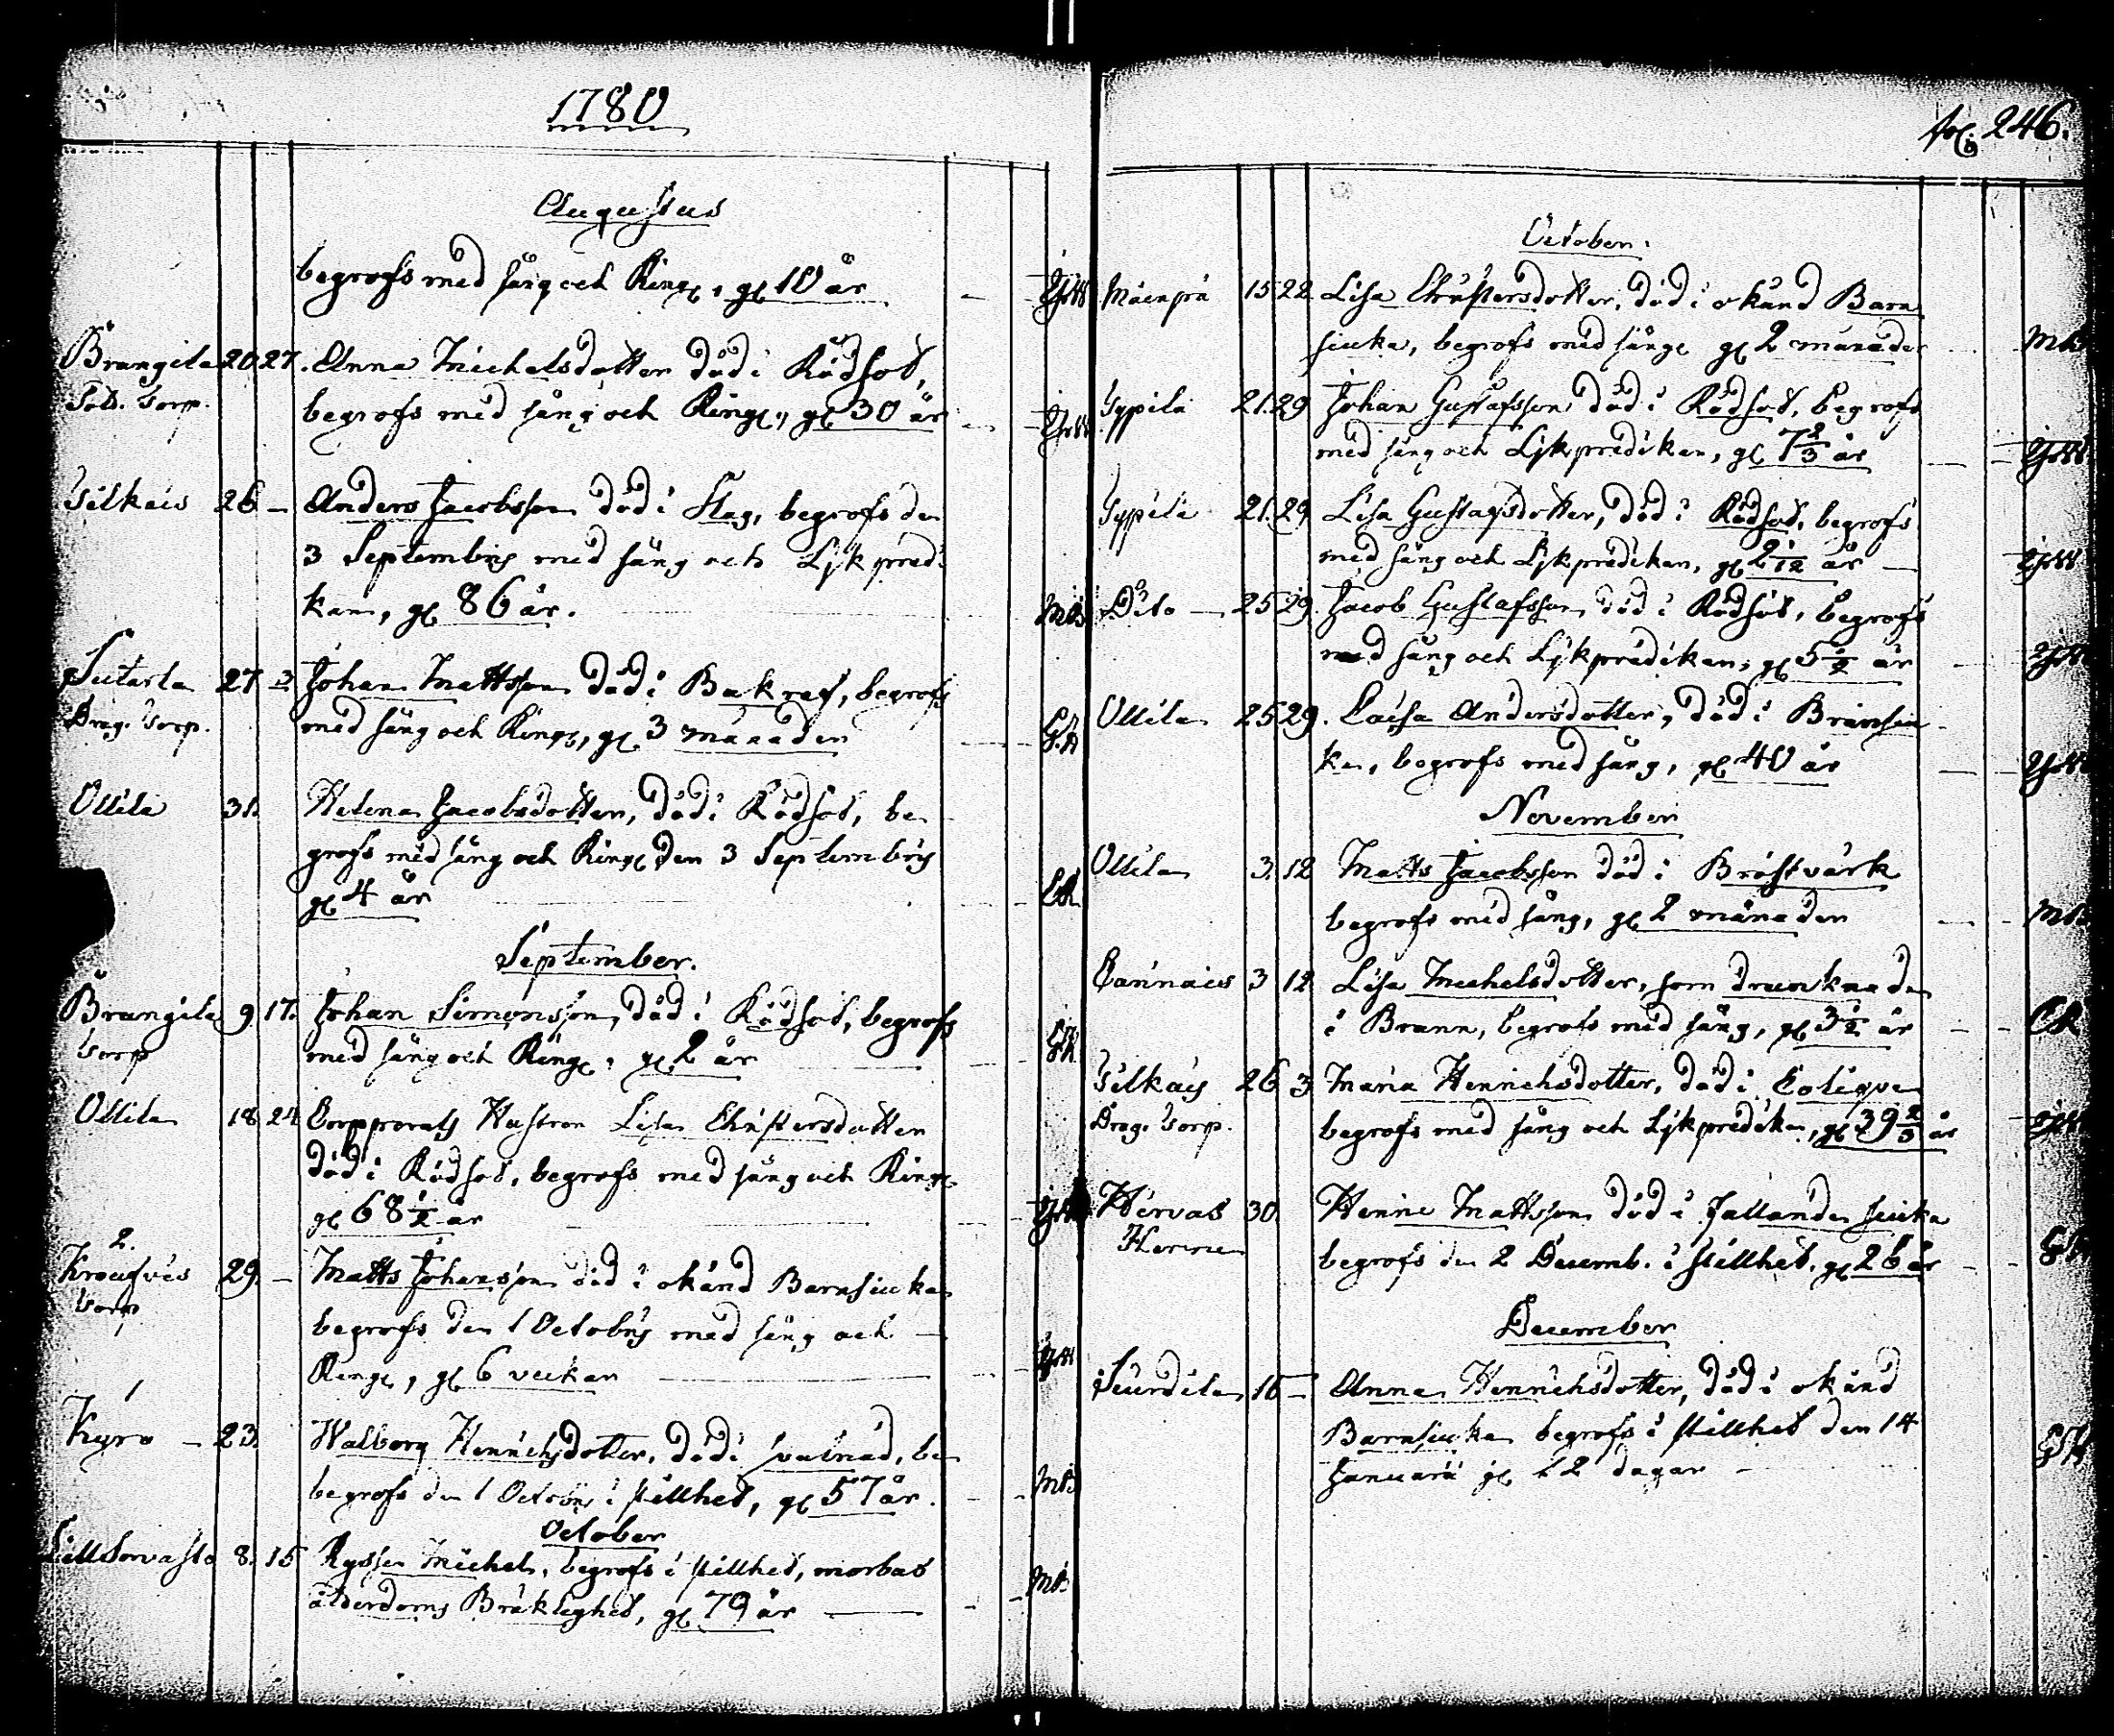 1780
Augustus
begrofs med sång och Ringn. gl 10 år
Brangila 20 27. Anna Michelsdotter död i Rödsot,
Sold. Torp. begrofs med sång och Ringn., gl 30 år
Vilkais 26 – Anders Jacobsson död i Slag, begrofs den
3 Septembris med sång och Lijkpredi
kan, gl 86 år. MB
27 3. Johan Mattsson död i Bukref, begrofs
Drag. Torp. med sång och Ringn., gl 3 månader
Ollila 31. Helena Jacobsdotter, död i Rödsot, be
grofs med sång och Ringn den 3 Septembris
gl 4 år
September.
Brangila 9. 17. Johan Simonsson, död i Rödsot, begrofs
Torp med sång och Ringn. gl 2 år
Ollila 18 24 Corpporals Hustron Lisa Christersdotter
död i Rödsot, begrofs med sång och Ringn
gl 68 1/2 år
2.
29. – Matts Johansson död i okänd Barnsiuka
Torp begrofs den 1 Octobris med sång och –
Ringn, gl 6 veckor
Kyrö – 23. Walborg Henrichsdotter, död i svulnad, be
begrofs den 1 Octobris i stillhet, gl 57 år. MB
October
Lill Sorvasto 8. 15 Michel, begrofs i stillhet, morbus
ålderdoms Bräklighet, gl 79 år MB
fol. 246.
October.
Mäenpä 15 22 Lisa Christersdotter, död i okänd Barn
siuka, begrofs med sång gl 2 månader MB
Sypilä 21. 29 Johan Gustafsson död i Rödsot, begrofs
med sång och Lijkpredikan, gl 7 2/3 år
Sypilä 21. 29 Lisa Gustafsdotter, död i Rödsot, begrofs
med sång och Lijkpredikan, gl 2 1/12 år
Dito – 25 29. Jacob Gustafsson död i Rödsot, begrofs
med sång och Lijkpredikan, gl 5 1/2 år
Ollila 25 29. Caisa Andersdotter, död i Bränsiu
ka, begrofs med sång, gl 40 år
November
Ollila 3. 12 Matts Jacobsson död i Bröstvärk
begrofs med sång, gl 2 månader MB
Cannais 3 12 Lisa Michelsdotter, som drunknade
i Brunn, begrofs med sång, gl 3 1/2 år
Vilkais 26 3 Maria Henrichsdotter, död i Colique
Drag. Torp. begrofs med sång och Lijkpredikan, gl 39 2/3 år
Hervas 30. Henric Mattsson död i fallande siuka
begrofs den 2 Decemb. i stillhet. gl 26 år
December
16 – Anna Henrichsdotter, död i okänd
Barnsiuka begrofs i stillhet den 14
Januarii gl 12 dagar –